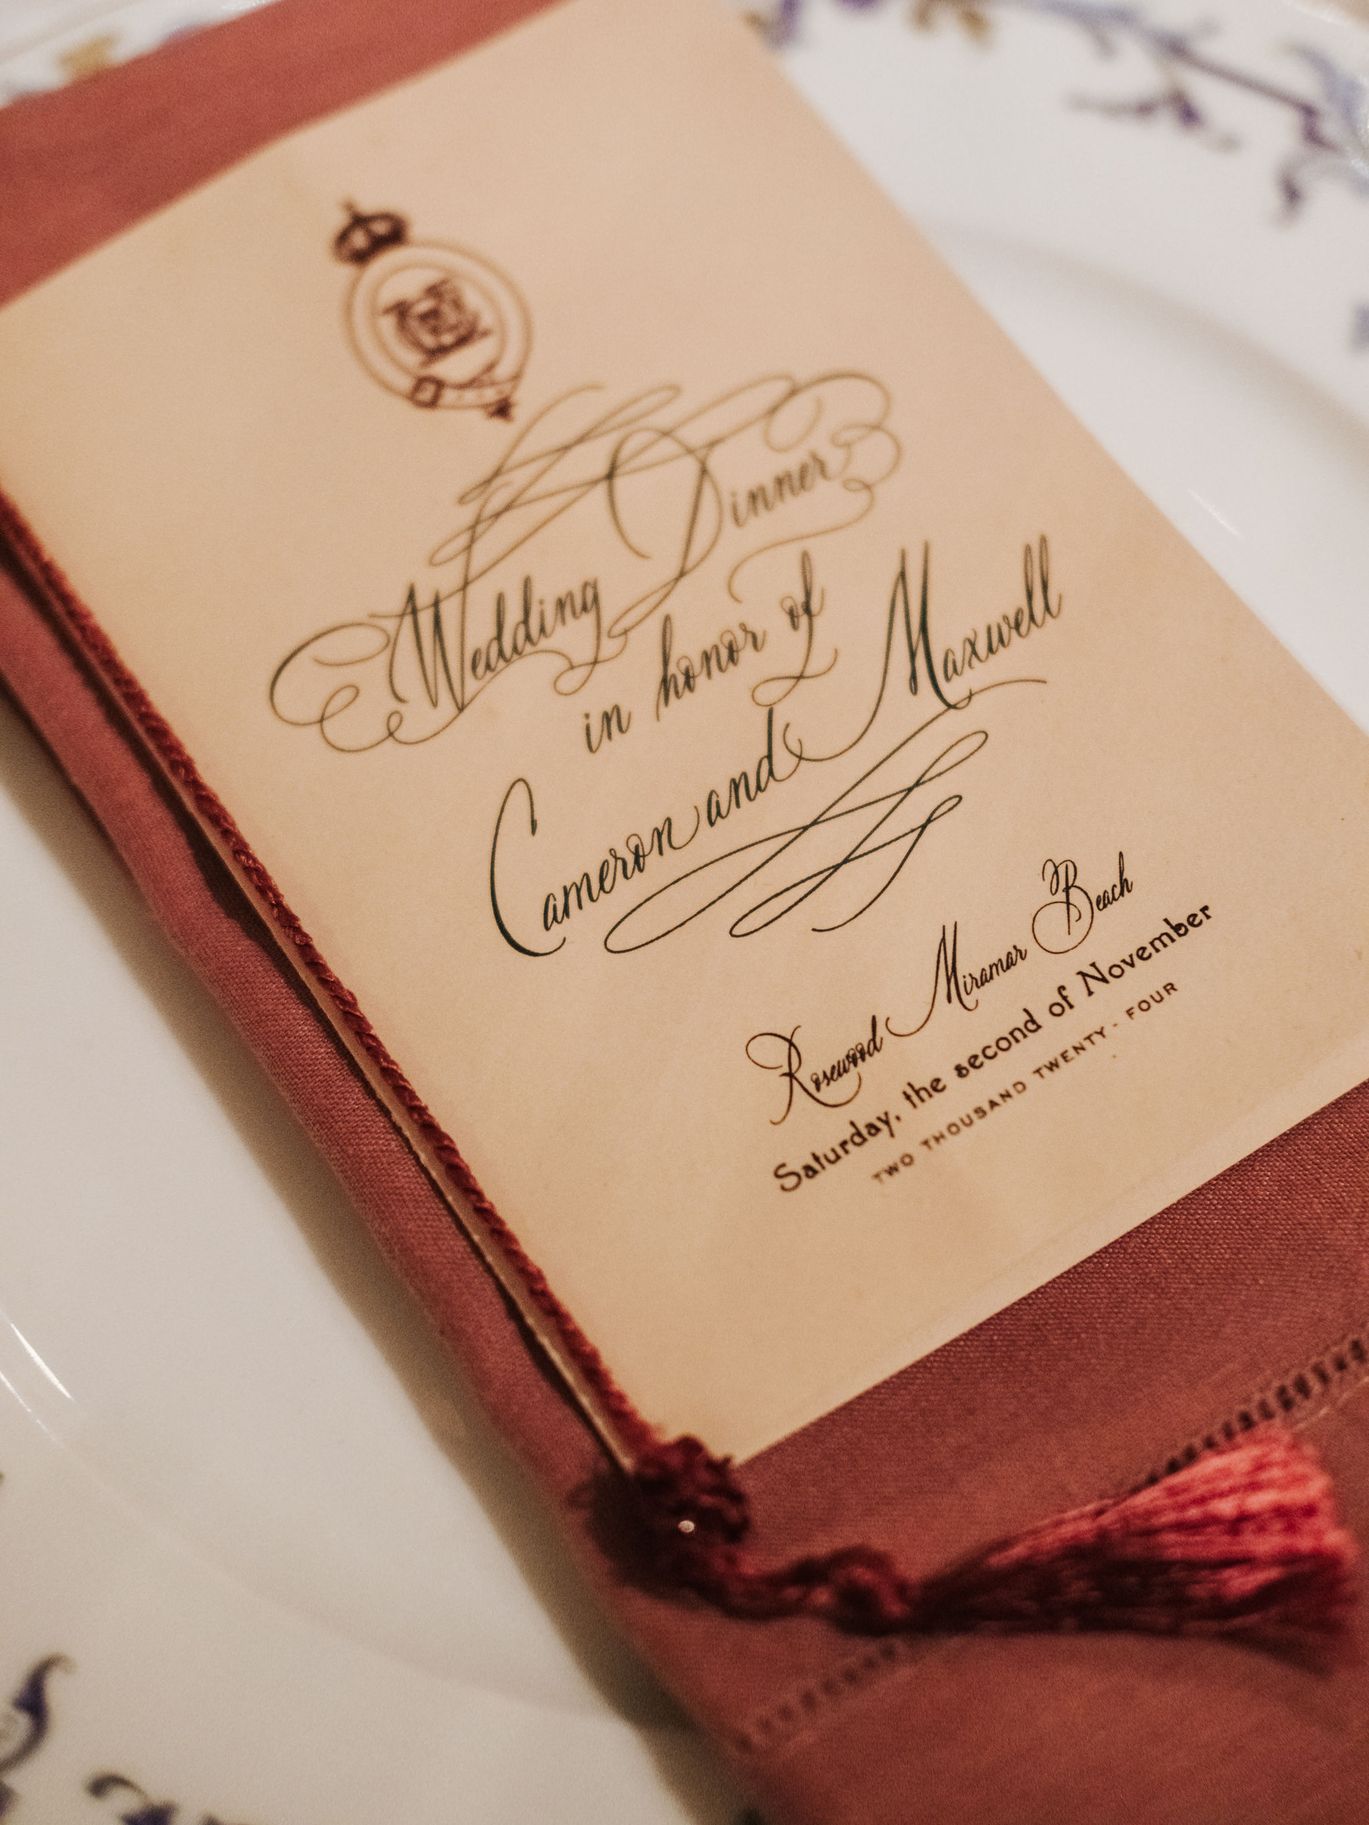 Wedding Dinner
in honor of
Cameron and Maxwell
Rosewood Miramar Beach
Saturday, the second of November
TWO THOUSAND TWENTY-FOUR